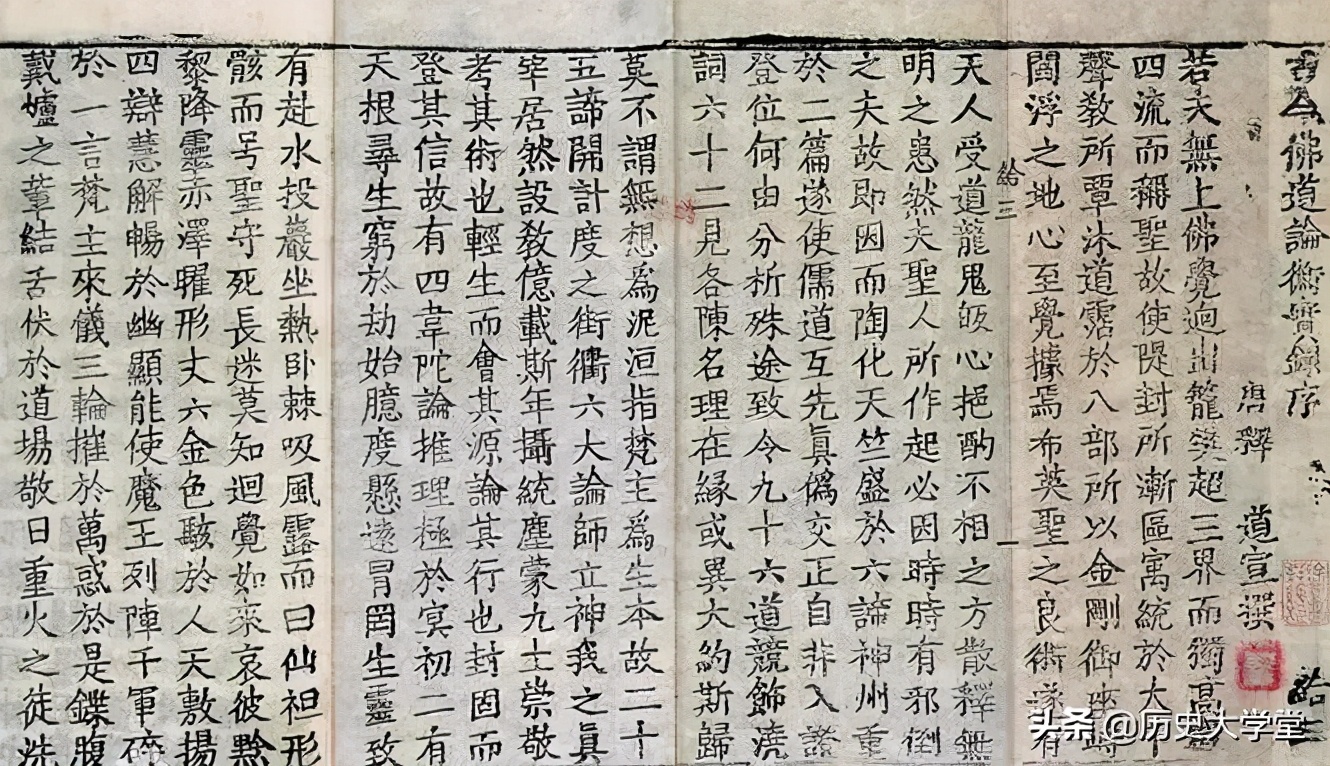 古今佛道論衡實錄序
唐釋 道宣撰
若夫無上佛覺迥出籠樊超三界而獨高
四流而稱聖故使隄封所漸區寓統於大千
聲教所覃沐道霑於八部所以金剛御座峙
閻浮之地心至覺據焉布英聖之良術遂有
天人受道龍鬼皈心挹酌不相之方散釋無
給三
一
明之患然夫聖人所作起必因時時有邪倒
之夫故即因而陶化天竺盛於六諦神州重
於二篇遂使儒道互先真偽交正自非入證
登位何由分析殊途致令九十六道競飾澆
詞六十二見各陳名理在緣或異大約斯歸
莫不謂無想為泥洹指梵主為生本故二十
五諦開計度之街衢六大論師立神我之真
宰居然設教億載斯年攝統塵蒙九土崇敬
考其術也輕生而會其源論其行也封固而
登其信故有四韋陀論推理極於冥初二有
天根尋生窮於劫始臆度懸遠冒罔生靈致
有赴水投巖坐熱卧棘吸風露而曰仙袒形
骸而号聖守死長迷莫知迴覺如來哀彼黔
黎降靈赤澤曜形丈六金色駭於人天敷揚
四辯慧解暢於幽顯能使魔王列陣千軍碎
於一言梵主來儀三輪摧於萬惑於是鍱腹
戴爐之輩結舌伏於道場敬日重火之徒洗
头条 @历史大学堂